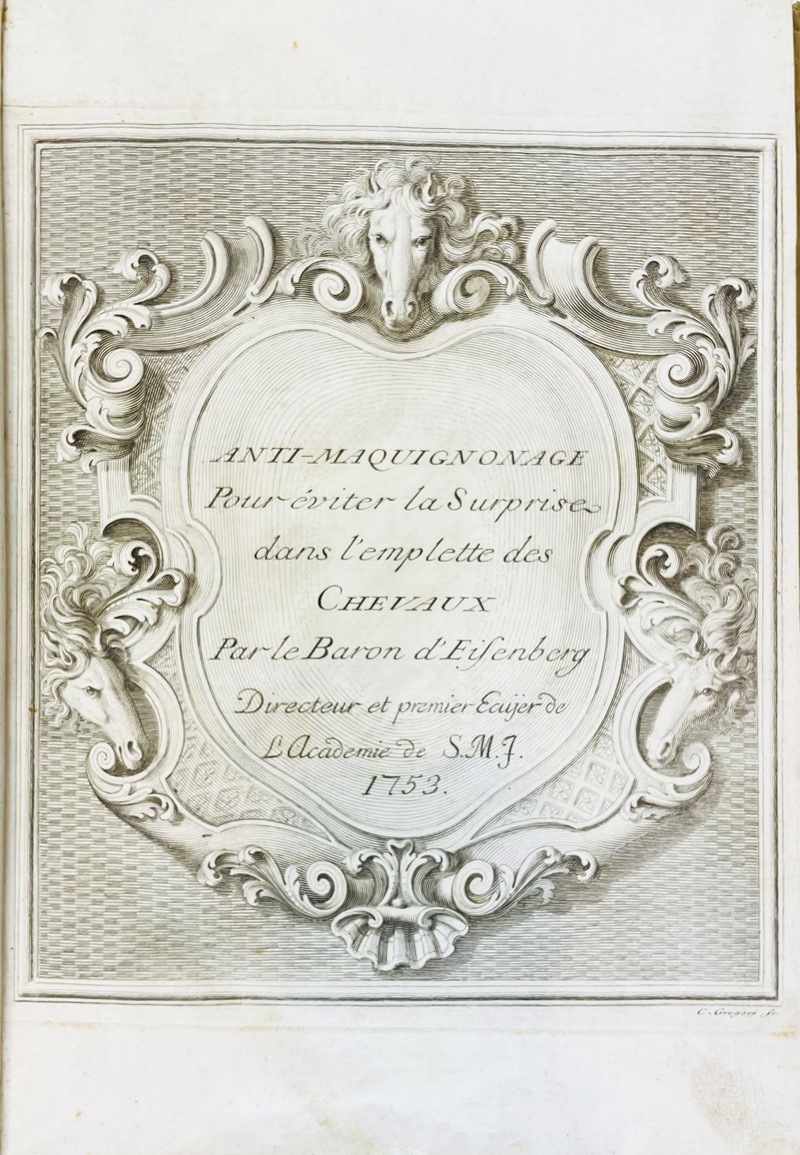 ANTI-MAQUIGNONAGE
Pour éviter la Surprise
dans l'emplette des
CHEVAUX
Par le Baron d'Eiſenberg
Directeur et premier Ecuÿer de
L'Academie de S.M.J.
1753.
C. Gregori ſc.